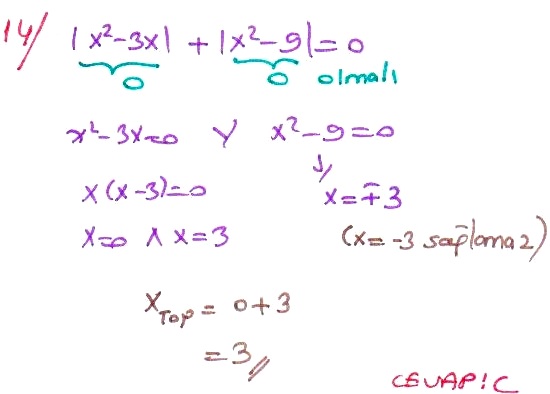 14/ |x²-3x| + |x²-9| = 0
0 0 olmalı
x²-3x=0 V x²-9=0
x(x-3)=0 x=∓3
x=0 ∧ x=3 (x=-3 sağlamaz)
x_Top = 0+3
=3//
CEVAP:C